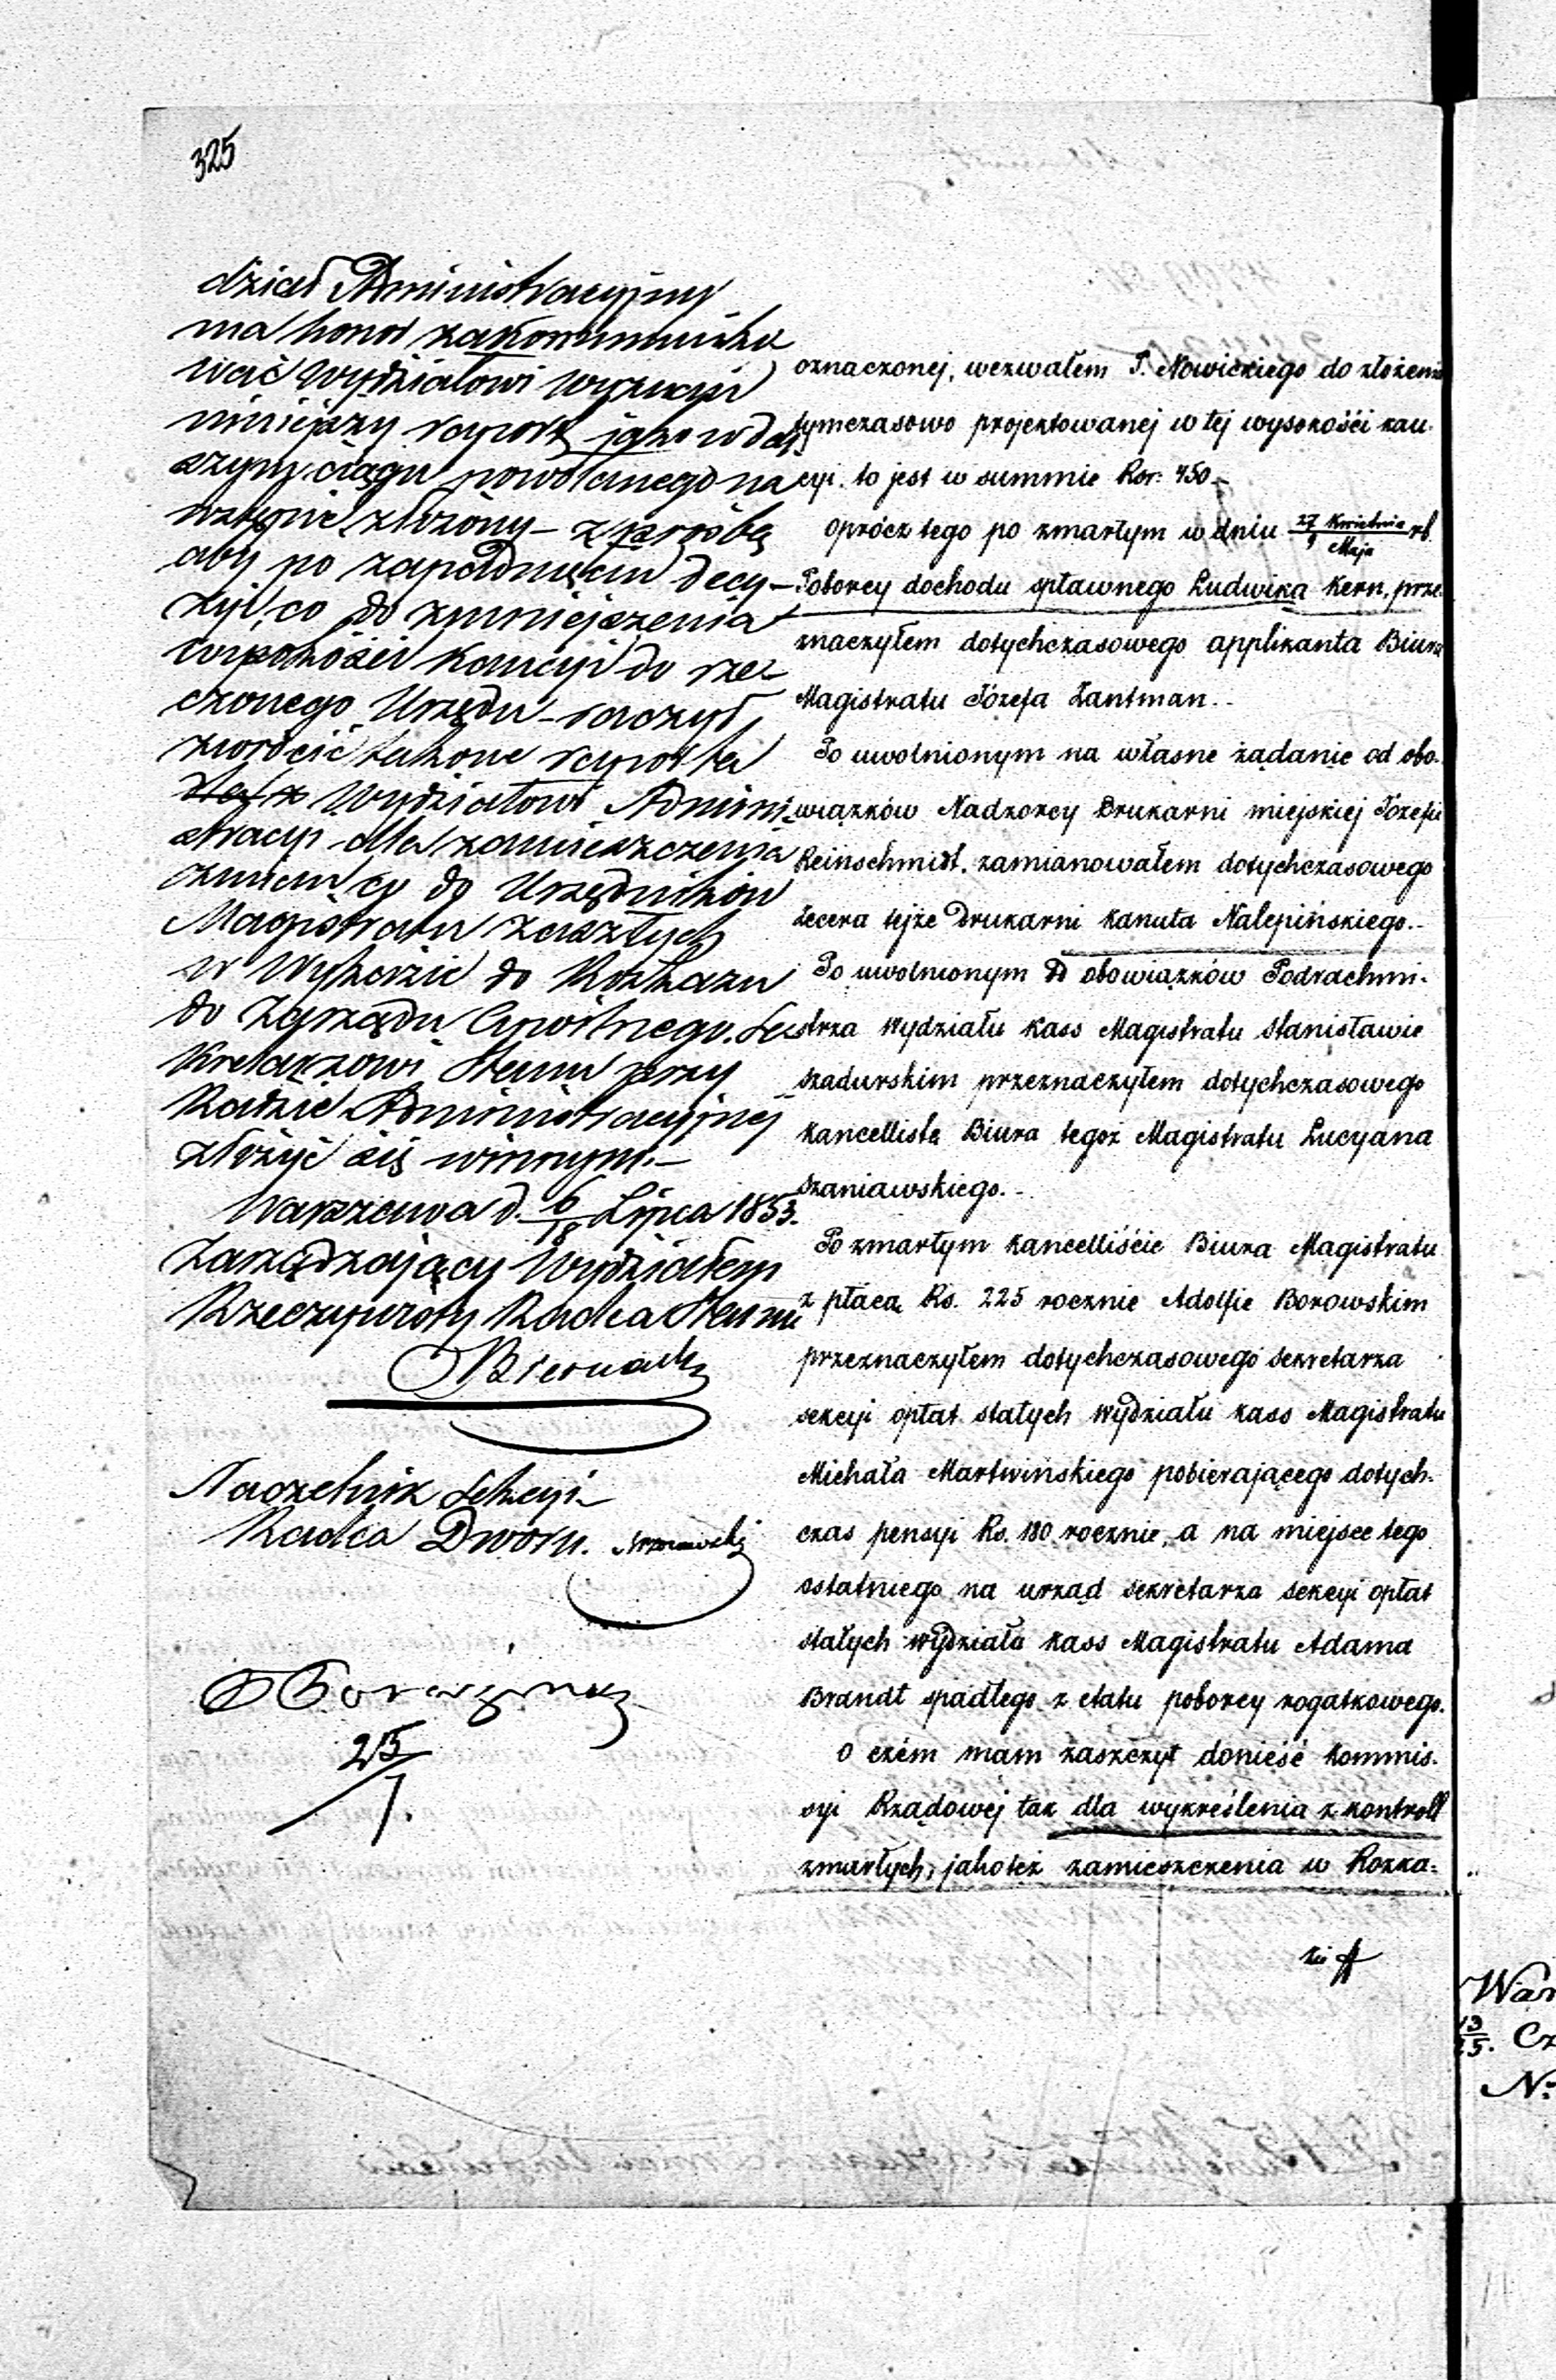 325
dział Administracyjny
ma honor zakommuniko
wać Wydziałowi
niniejszy raport jako w dal
szym ciągu powołanego na
wstępie złożony – z prośbą
aby po zapadnięciu decy–
zyi, co do zmniejszenia
wysokości kaucyi do rze–
czonego Urzędu – raczył
zwrócić takowe raporta
Wydziałowi Admini
stracyi – dla zamieszczenia
zmian co do Urzędników
Magistratu zaszłych
w Wykazie do Rozkazu
do Zarządu Cywilnego. Se
kretarzowi Stanu przy
Radzie Administracyjnej
złożyć się winnym. –
Warszawa d. 6/18 Lipca 1853.
Zarządzający Wydziałem
Rzeczywisty Radca Stanu
Biernacki
Naczelnik Sekcyi –
Radca Dworu.
25/7.
oznaczonej, wezwałem P. Nowickiego do złożenia
tymczasowo projektowanej w tej wysokości kau-
cyi. to jest w summie Rsr: 450 –
oprócz tego po zmarłym w dniu 27 Kwietnia/9 Maja rb.
Poborcy dochodu spławnego Ludwiku Kern, prze-
znaczyłem dotychczasowego applikanta Biura
Magistratu Józefa Lantman. –
Po uwolnionym na własne żądanie od obo-
wiązków Nadzorcy Drukarni miejskiej Józefie
Reinschmidt. zamianowałem dotychczasowego
zecera tejże Drukarni Kanuta Nalepińskiego. –
Po uwolnionym od obowiązków Podrachmi-
strza Wydziału Kass Magistratu Stanisławie
Szadurskim przeznaczyłem dotychczasowego
Kancellistę Biura tegoż Magistratu Lucyana
Szaniawskiego. –
Po zmarłym Kancelliście Biura Magistratu
z płacą Rs. 225 rocznie Adolfie Borowskim
przeznaczyłem dotychczasowego Sekretarza
Sekcyi opłat stałych Wydziału Kass Magistratu
Michała Martwińskiego pobierającego dotych-
czas pensyi Rs. 180 rocznie, a na miejsce tego
ostatniego na urząd Sekretarza Sekcyi opłat
stałych Wydziału Kass Magistratu Adama
Brandt spadłego z etatu poborcy rogatkowego.
O czém mam zaszczyt donieść Kommis-
syi Rządowej tak dla wykreślenia z kontroll
zmarłych, jakoteż zamieszczenia w Rozka-
War
13/25. Cz
N: